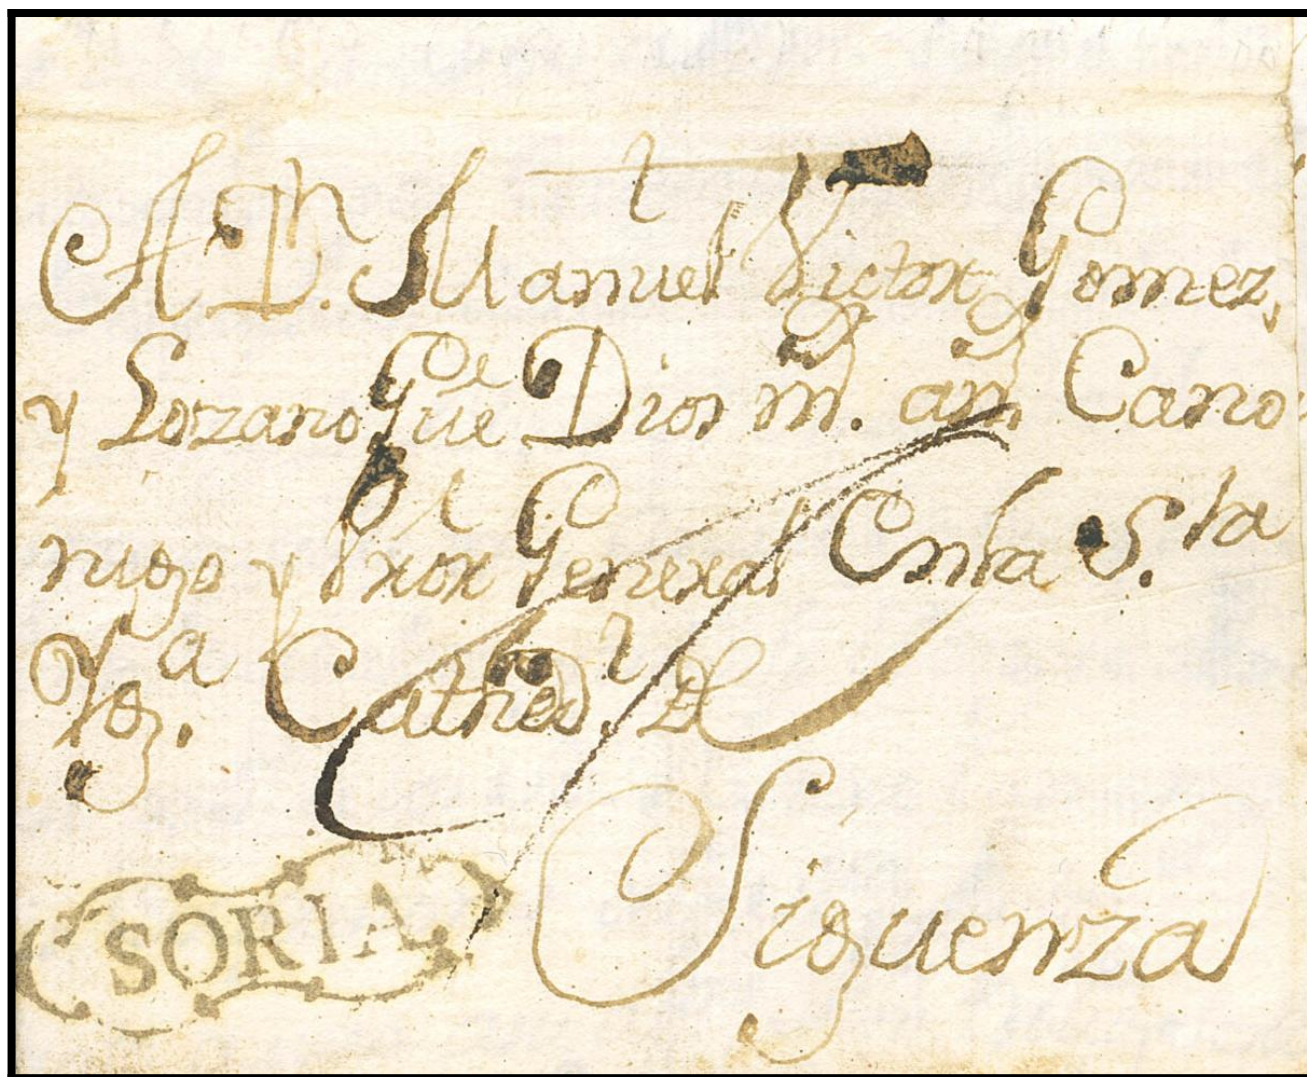 A Dn. Manuel Victor Gomez,
y Lozano Gue Dios md. as. Cano
nigo y Prior General En la S.ta
Yga. Cathedl. de
Siguenza
SORIA